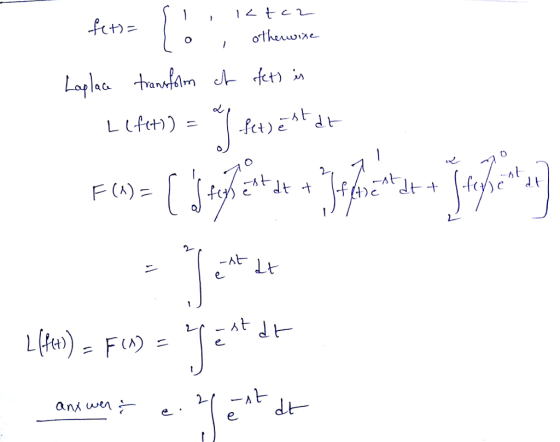 f(t) = { 1 , 1 < t < 2
0 , otherwise
Laplace transform of f(t) is
L(f(t)) = ∫₀^∝ f(t) e^-st dt
F(s) = [ ∫₀¹ f(t)↗0 e^-st dt + ∫₁² f(t)↗1 e^-st dt + ∫₂^∝ f(t)↗0 e^-st dt ]
= ∫₁² e^-st dt
L(f(t)) = F(s) = ∫₁² e^-st dt
answer :- e. ∫₁² e^-st dt